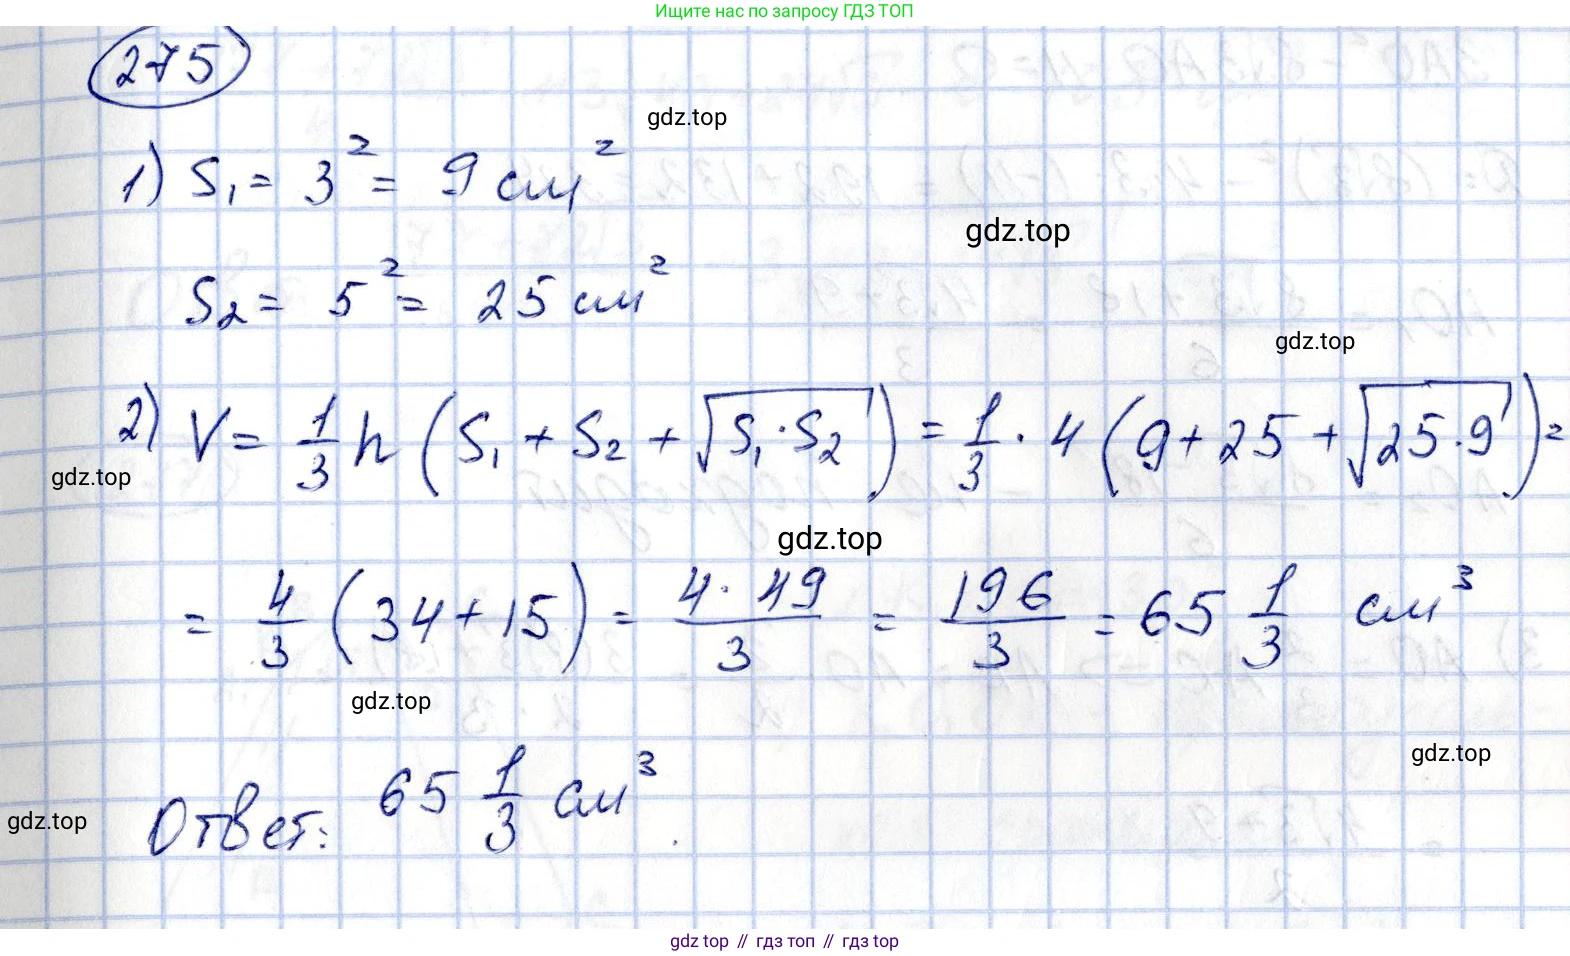 Ищите нас по запросу ГДЗ ТОП
275
gdz.top
1) S₁ = 3² = 9 см²
gdz.top
S₂ = 5² = 25 см²
gdz.top
2) V = 1/3 h (S₁ + S₂ + √(S₁·S₂)) = 1/3 · 4 (9 + 25 + √(25·9)) =
gdz.top
gdz.top
= 4/3 (34 + 15) = 4·49/3 = 196/3 = 65 1/3 см³
gdz.top
gdz.top
Ответ: 65 1/3 см³.
gdz.top
gdz top // гдз топ // гдз top